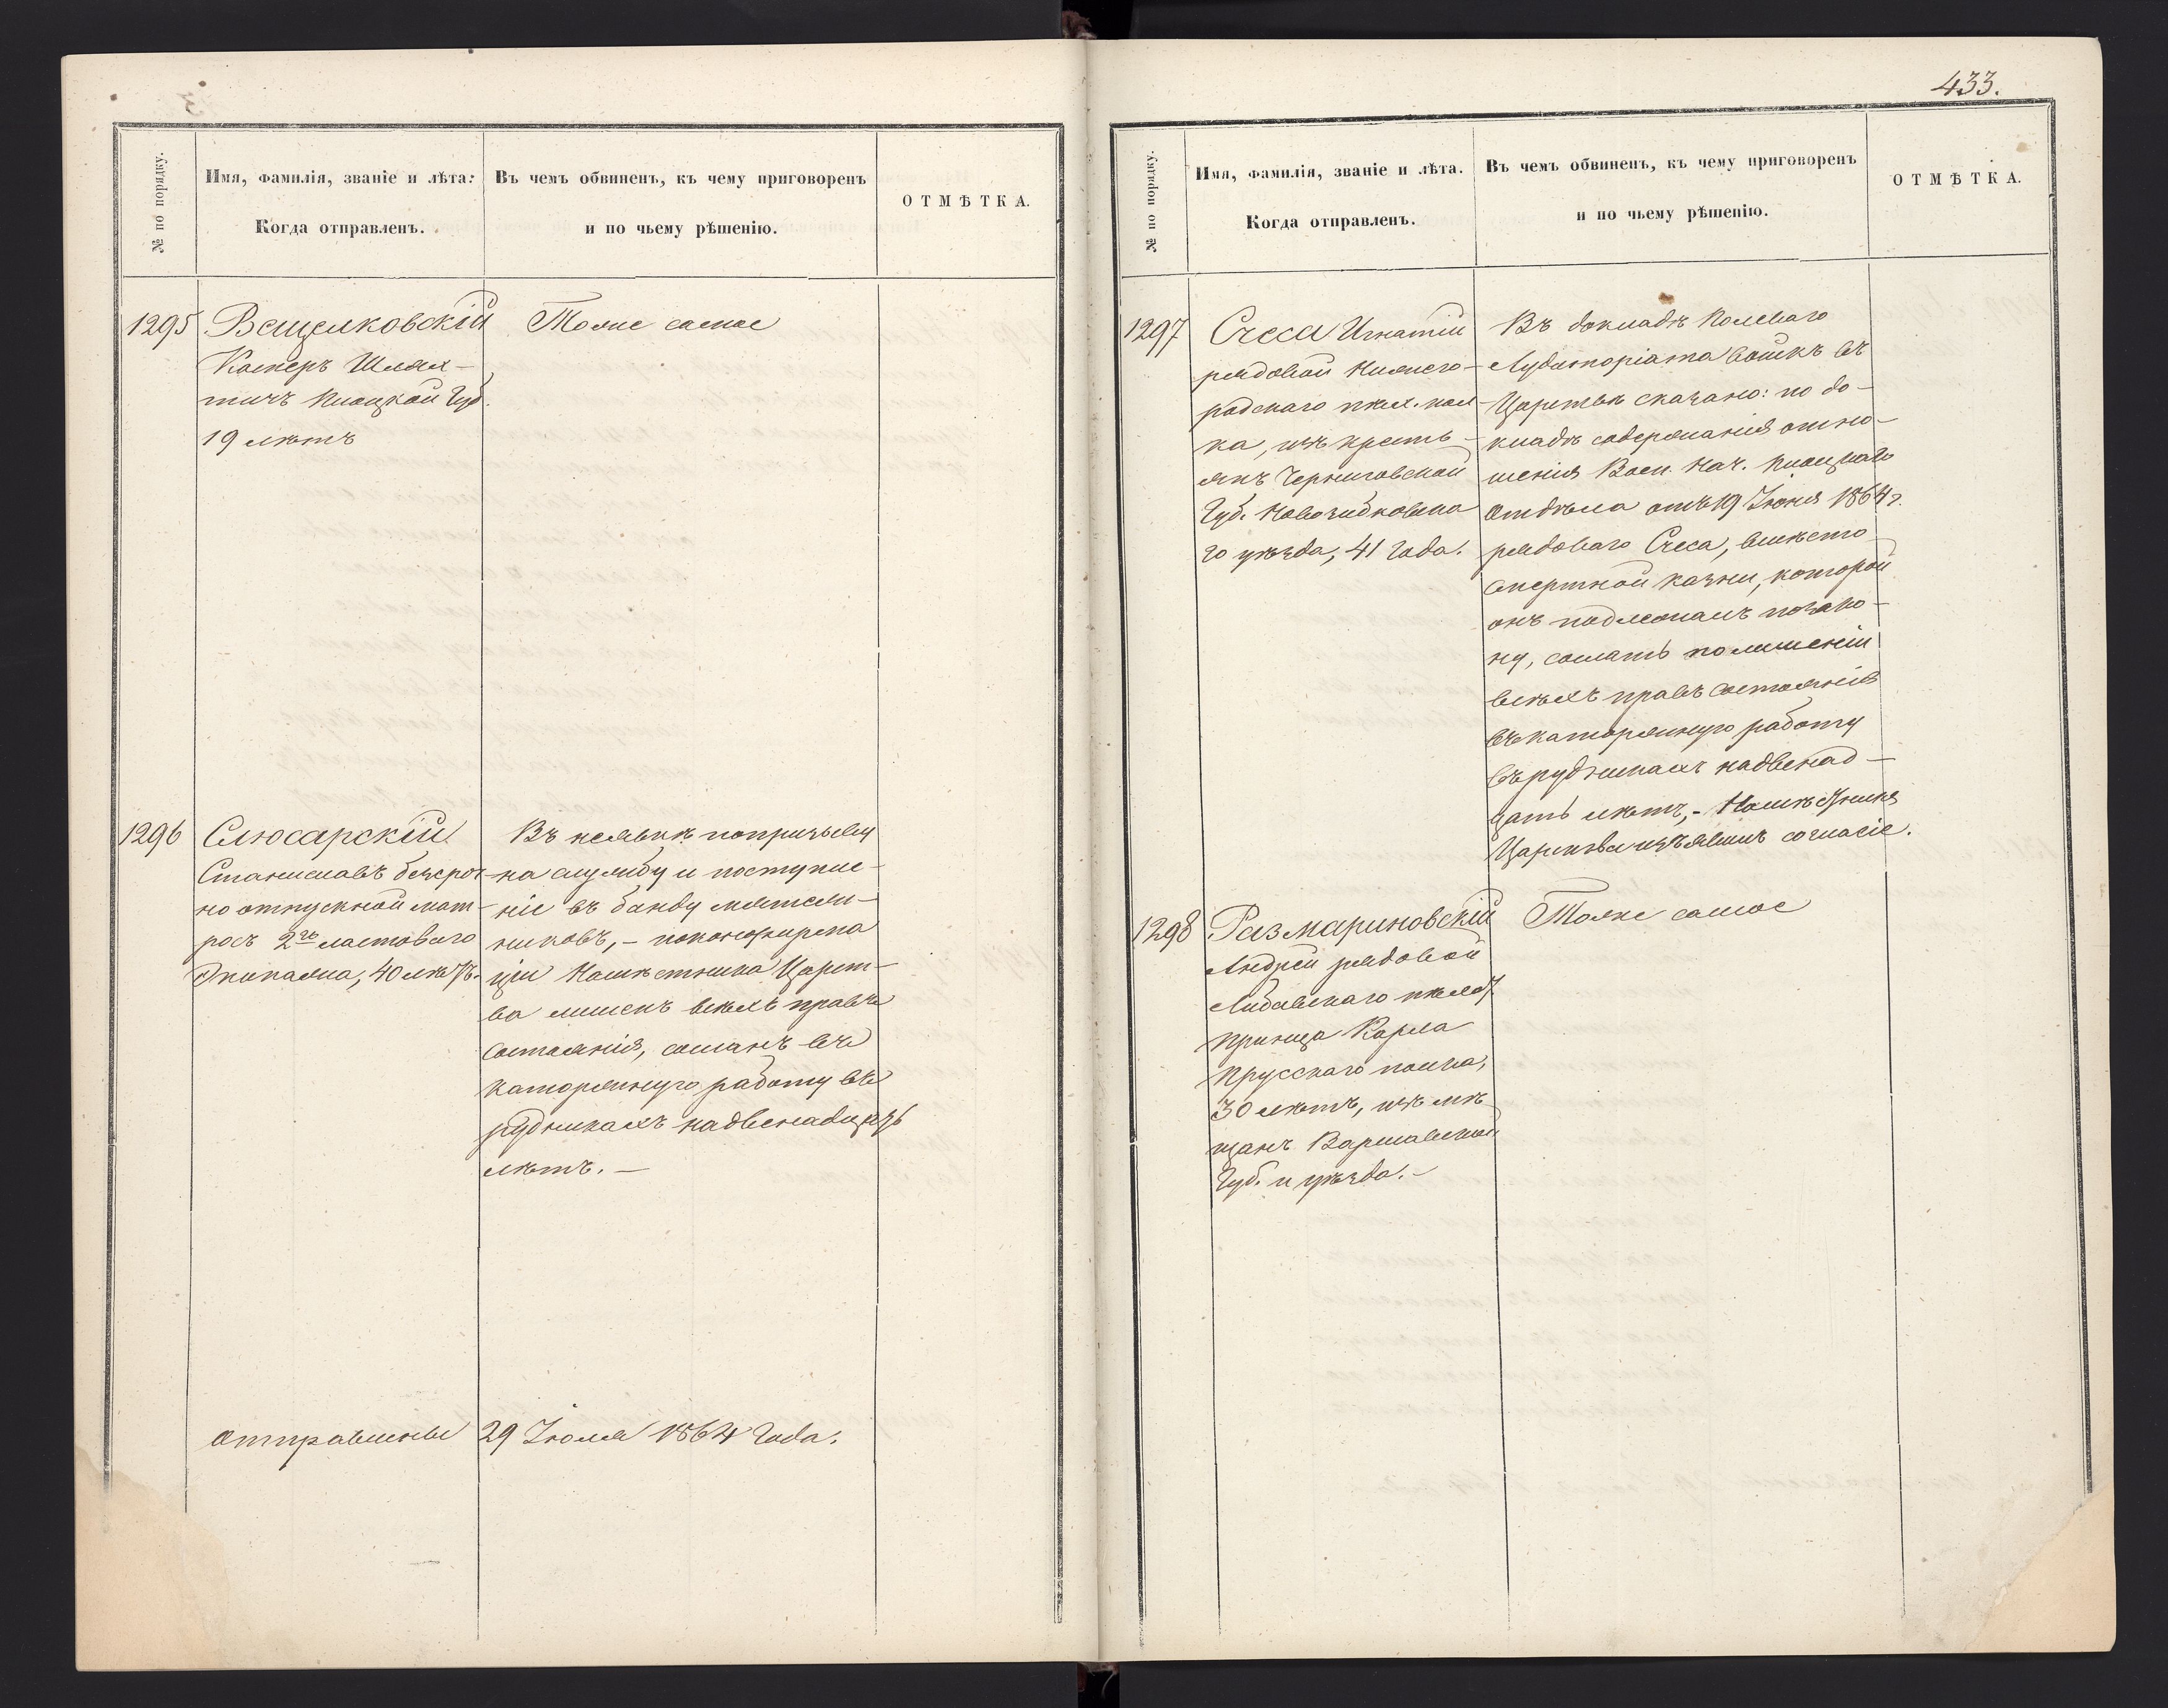 433.
№ по порядку.
Имя, фамилія, званіе и лѣта.
Когда отправленъ.
Въ чемъ обвиненъ, къ чему приговоренъ
и по чьему рѣшенію.
ОТМѢТКА.
1295
Венцлковскій
Каперъ Шлях-
тичъ Плоцкой Губ.
19 лѣтъ
Тоже самое
1296
Слюсарскій
Станиславъ безсроч-
но отпускной мат-
росъ 2го ластоваго
Экипажа, 40 лѣтъ.
Въ неявкѣ по призыву
на службу и поступле-
ніе въ банду мятеж-
никовъ, - по конфирма
ціи Намѣстника Царст-
ва лишенъ всѣхъ правъ
состоянія, сосланъ въ
каторжную работу въ
рудникахъ на двенадцать
лѣтъ. -
Отправлены 29 Іюля 1864 года.
№ по порядку.
Имя, фамилія, званіе и лѣта.
Когда отправленъ.
Въ чемъ обвиненъ, къ чему приговоренъ
и по чьему рѣшенію.
ОТМѢТКА.
1297
Счеса Игнатій
рядовой Нижего-
родскаго пѣх. пол
ка, изъ кресть-
янъ Черниговской
Губ. Новозыбковска
го уѣзда, 41 года.
Въ докладѣ Полеваго
Аудиторіата войскъ въ
Царствѣ сказано: по до-
кладѣ содержанія отно-
шенія Воен. Нач. Плоцкаго
Отдѣла отъ 19 Іюня 1864 г.
рядоваго Счеса, вмѣсто
смертной казни, которой
онъ подлежалъ по зако-
ну, сослать по лишеніи
всѣхъ правъ состоянія
въ каторжную работу
въ рудникахъ на двенад-
цать лѣтъ, - Намѣстникъ
Царства изъявилъ согласіе.
1298
Размариновскій
Андрей рядовой
Либавскаго пѣхот
Принца Карла
Прусскаго полка,
30 лѣтъ, изъ мѣ
щанъ Варшавской
Губ. и уѣзда. -
Тоже самое